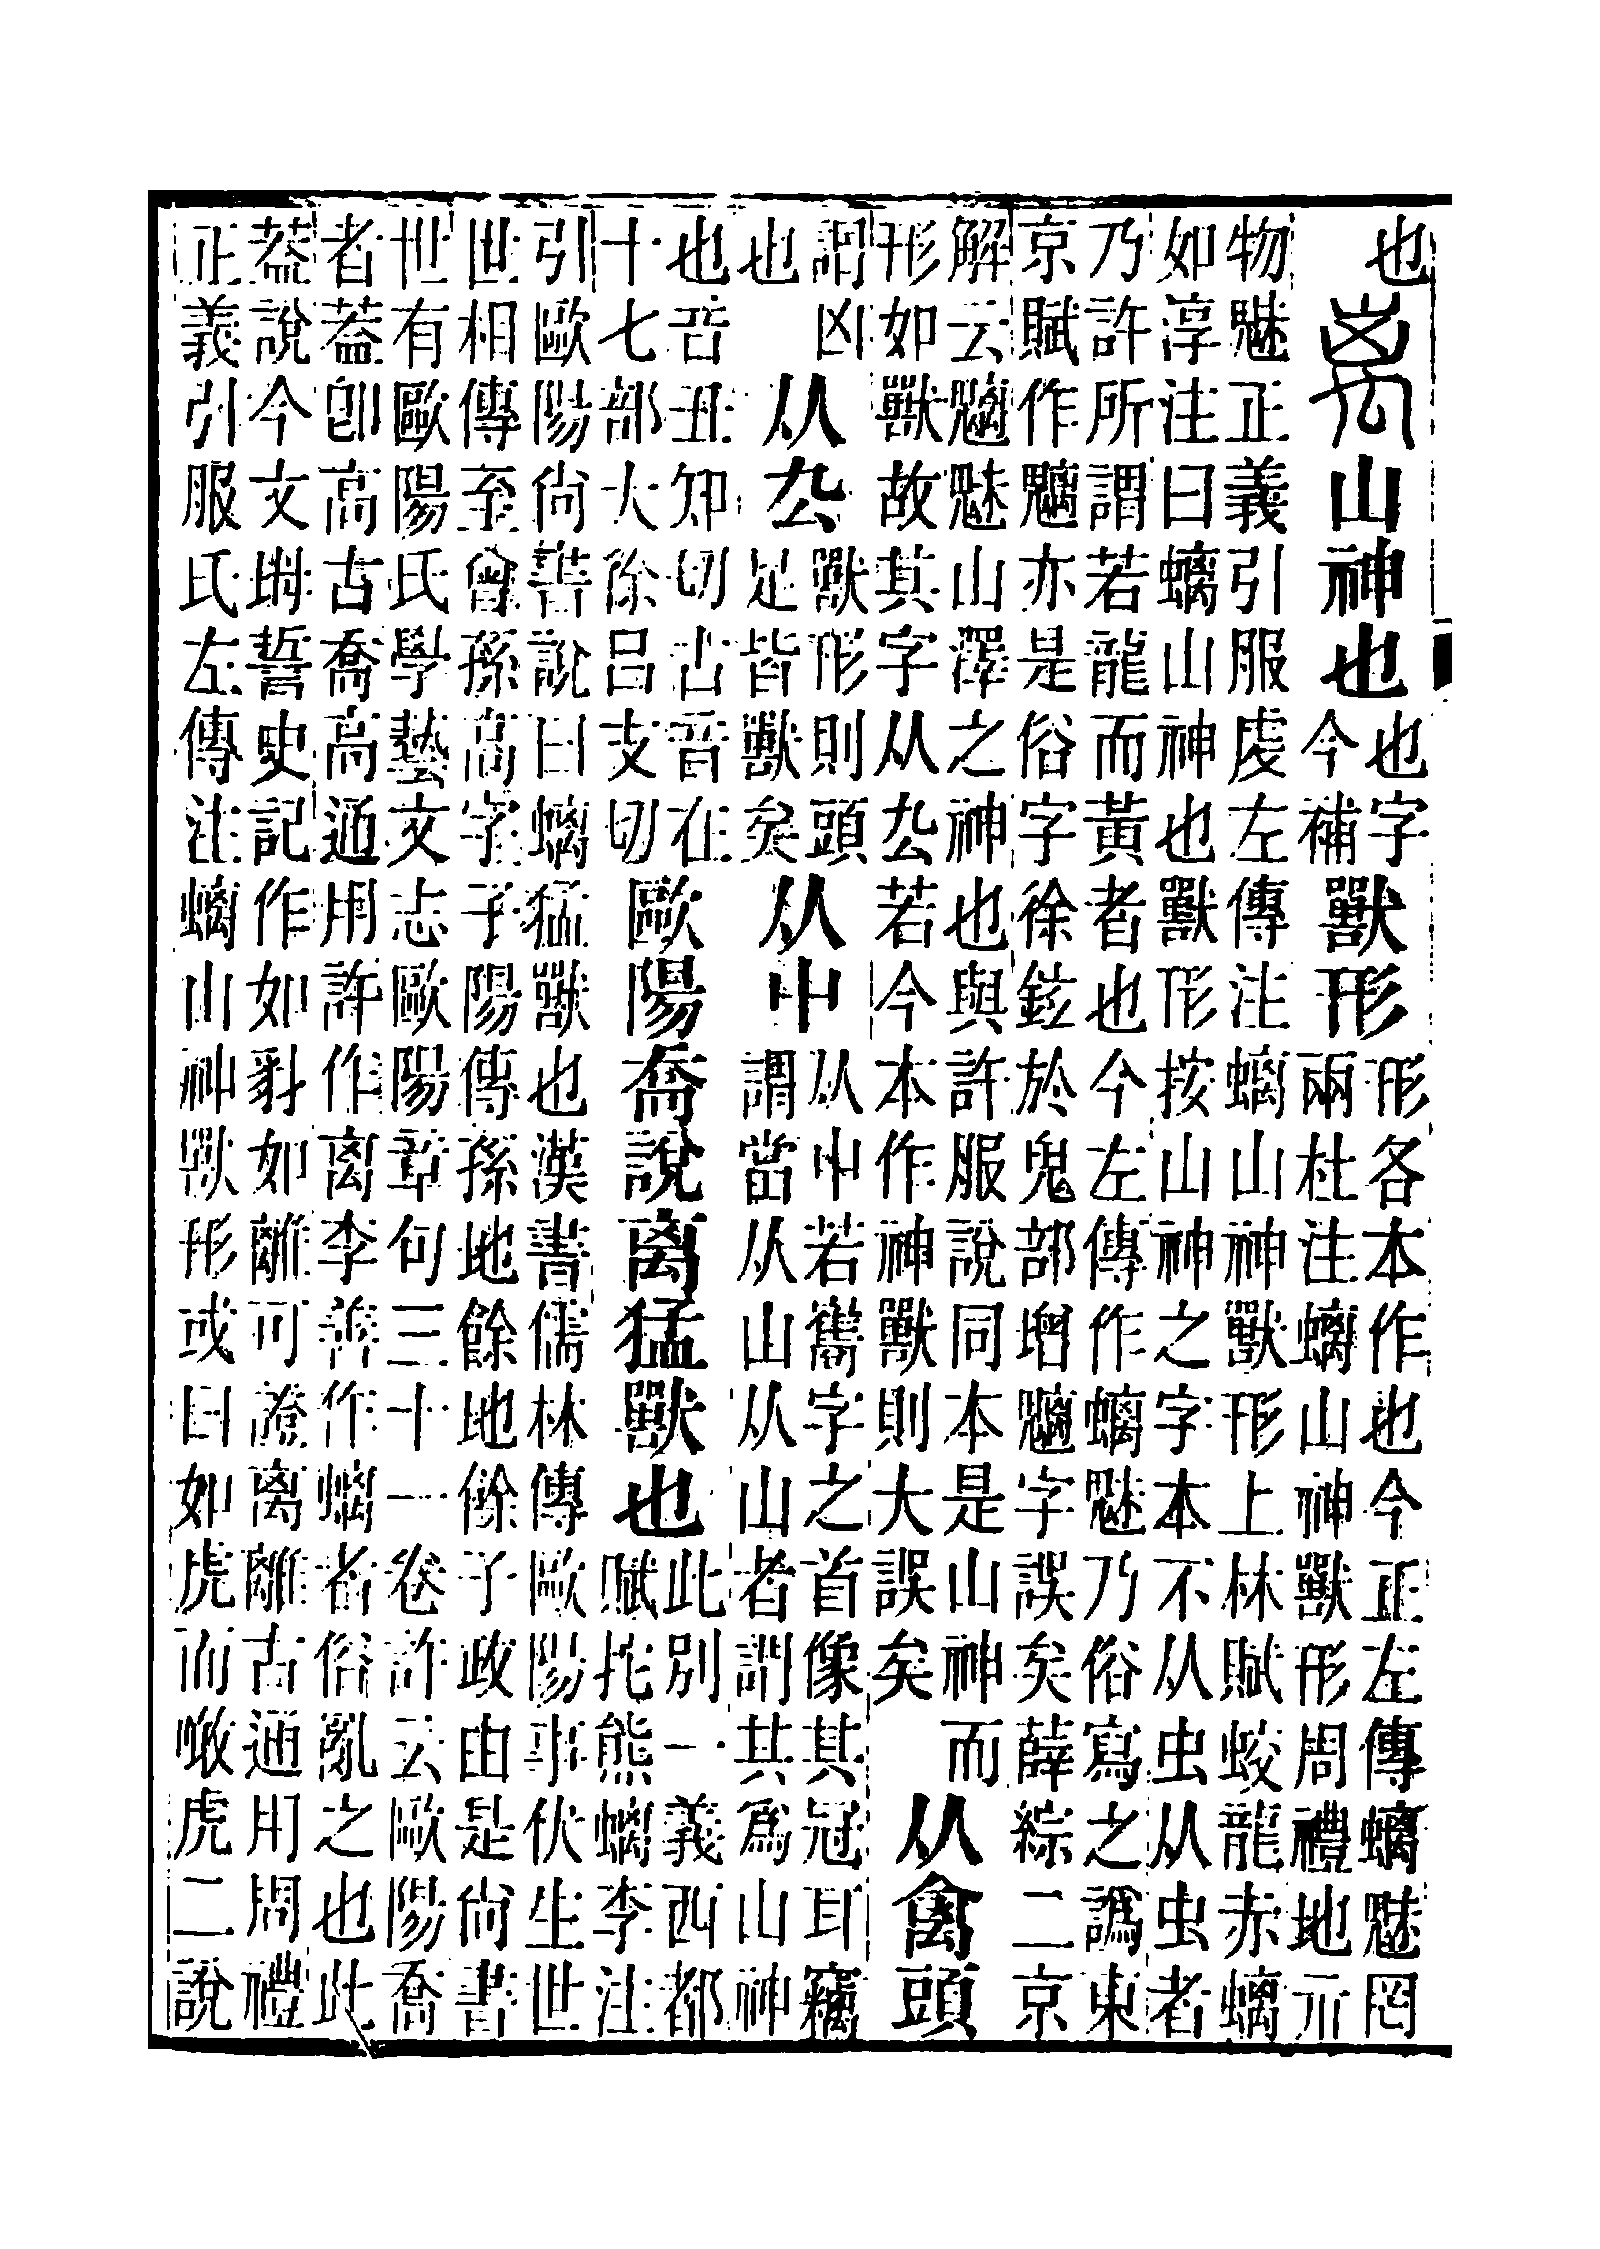 也
离山神也
也字
今補
獸形
形各本作也今正左傳螭魅罔
兩杜注螭山神獸形周禮地示
物魅正義引服虔左傳注螭山神獸形上林賦蛟龍赤螭
如淳注曰螭山神也獸形按山神之字本不从虫从虫者
乃許所謂若龍而黃者也今左傳作螭魅乃俗寫之譌東
京賦作魑亦是俗字徐鉉於鬼部增魑字誤矣薛綜二京
解云魑魅山澤之神也與許服說同本是山神而
形如獸故其字从厹若今本作神獸則大誤矣
从禽頭
謂凶
也
从厹
獸形則頭
足皆獸矣
从屮
从屮若舊字之首像其冠耳竊
謂當从山从山者謂其爲山神
也音丑知切古音在
十七部大徐呂支切
歐陽喬說离猛獸也
此別一義西都
賦挓熊螭李注
引歐陽尙書說曰螭猛獸也漢書儒林傳歐陽事伏生世
世相傳至曾孫高字子陽傳孫地餘地餘子政由是尙書
世有歐陽氏學藝文志歐陽章句三十一卷許云歐陽喬
者葢卽高古喬高通用許作离李善作螭者俗亂之也此
葢說今文坶誓史記作如豺如離可證离離古通用周禮
正義引服氏左傳注螭山神獸形或曰如虎而噉虎二說